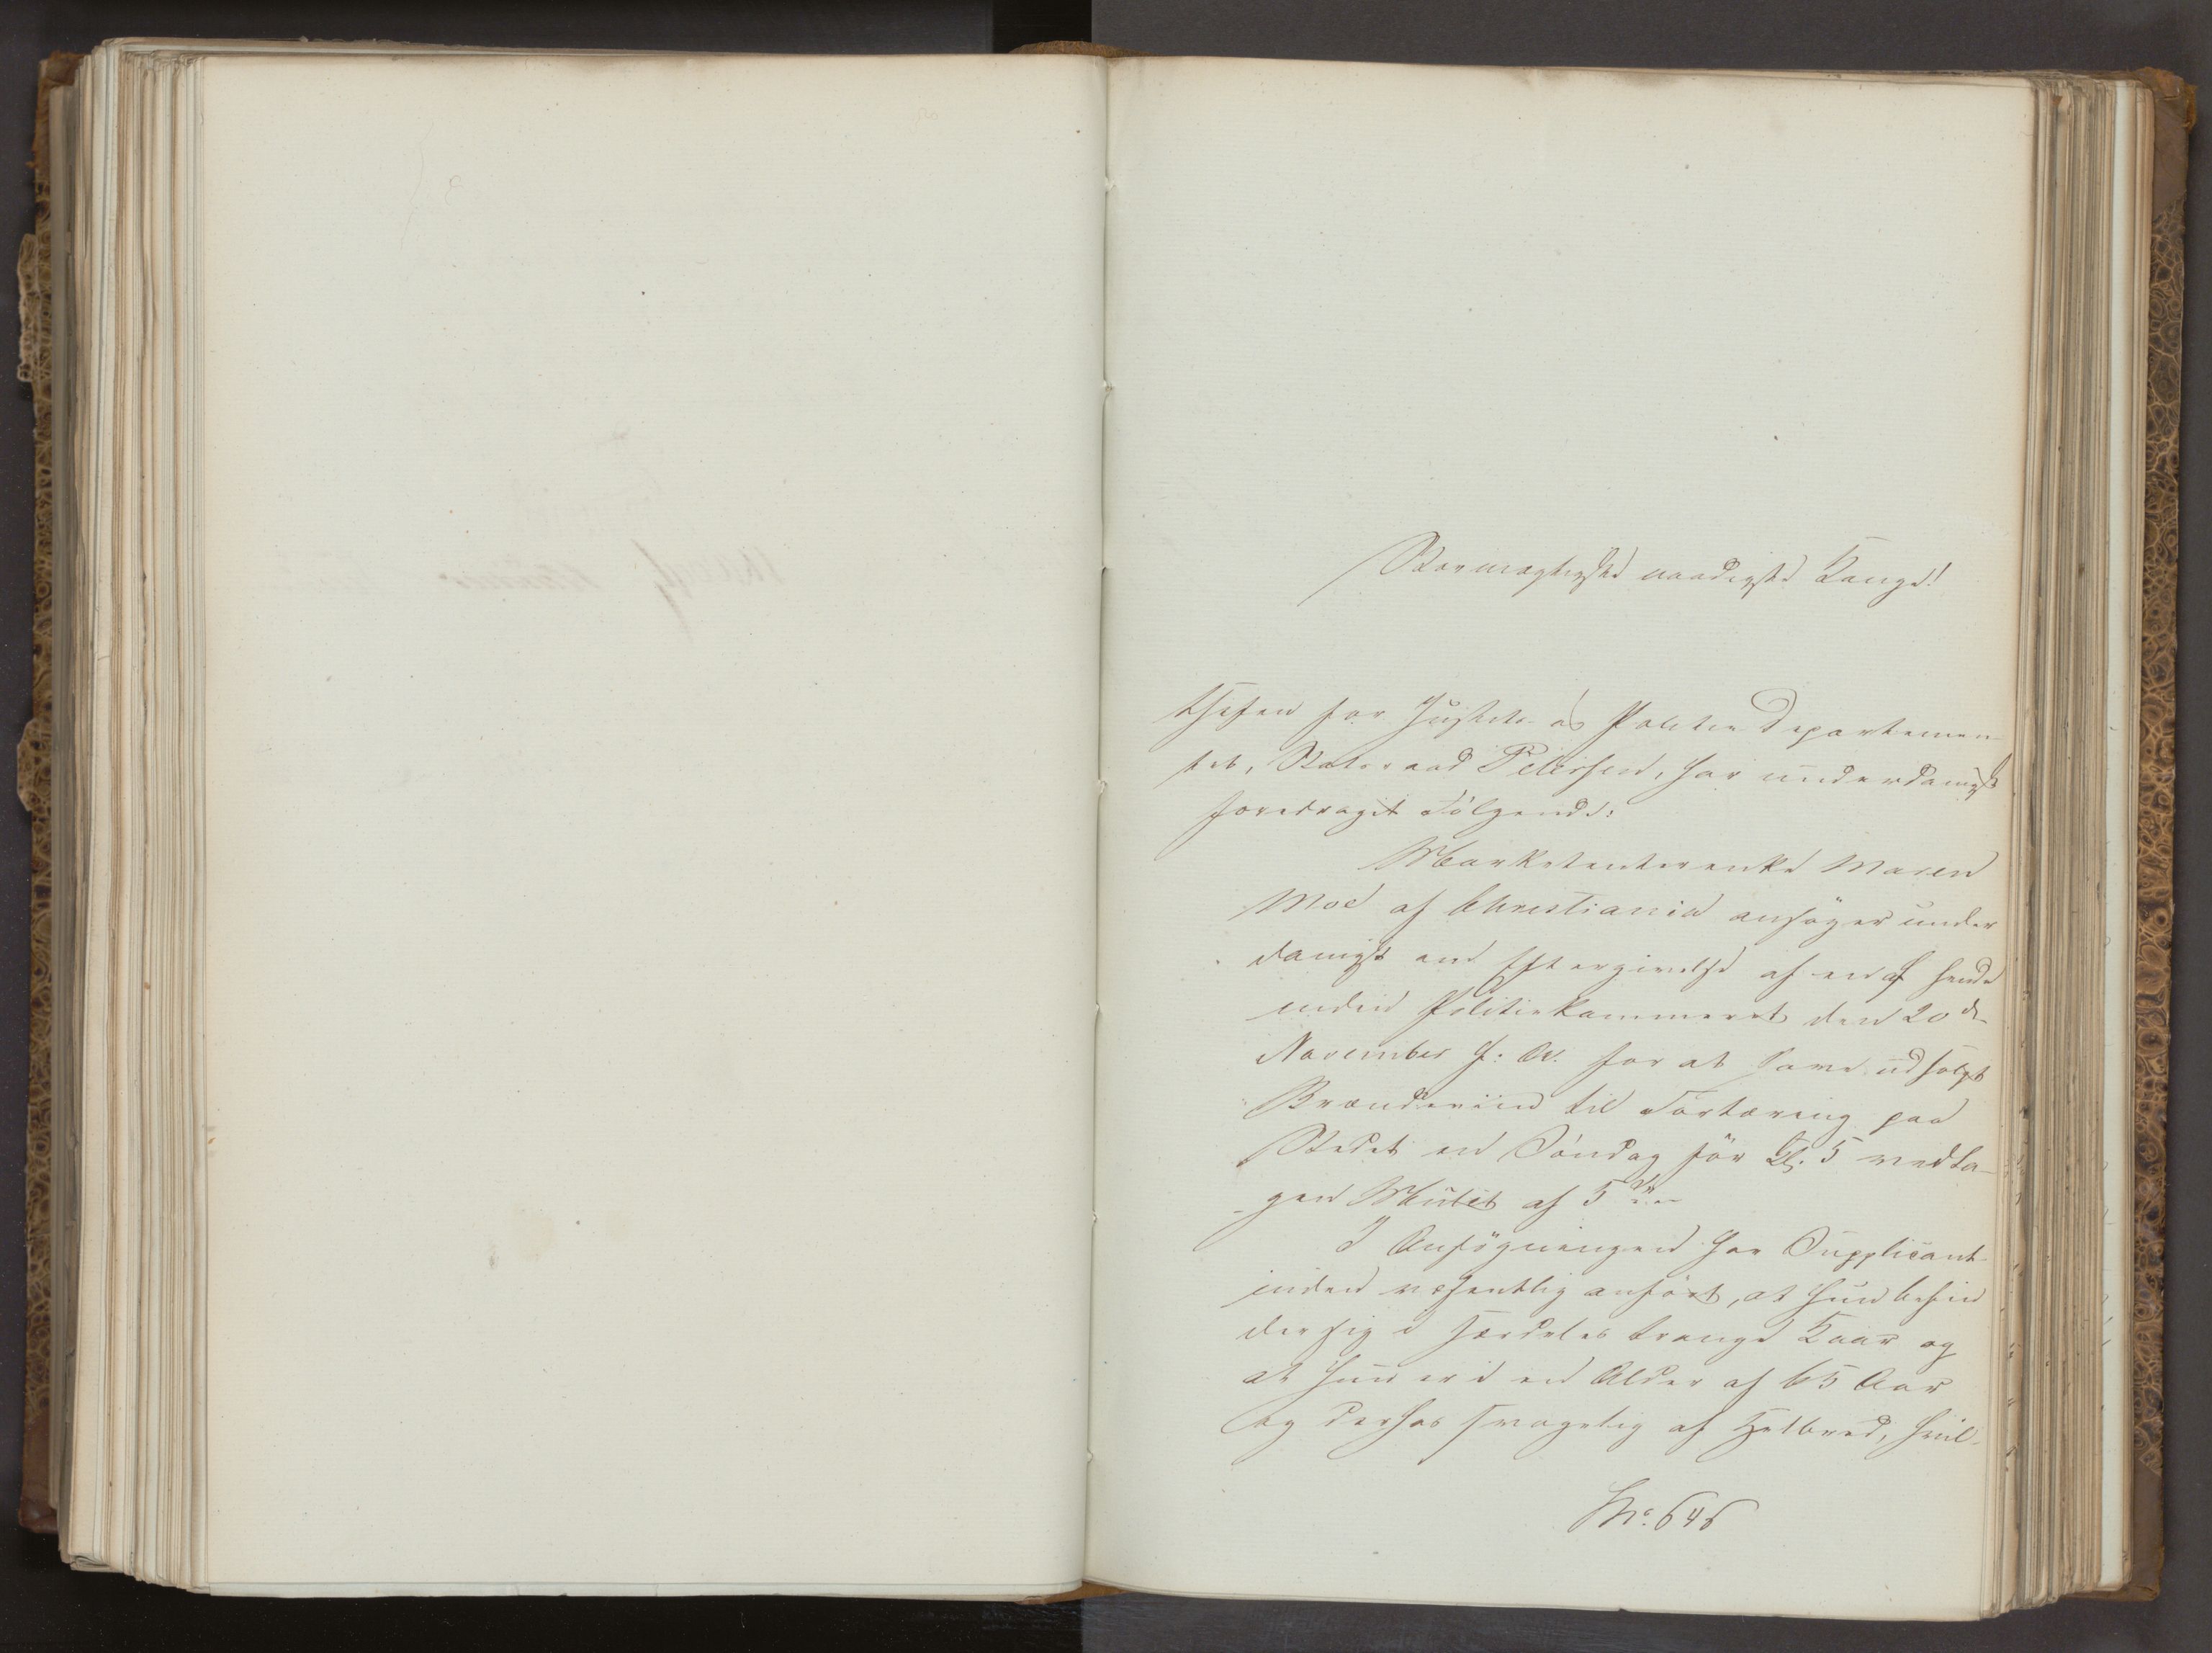 Stormægtigste naadigste Konge!
Chefen for Justits- og Politie Departemen-
tet, Statsraad Petersen, har underdanigst
foredraget Følgende:
Marketenterenke Maren
Moe af Christiania ansøger under
danigst om Eftergivelse af en af hende
inden Politiekammeret den 20de
November f: A. for at have udsolgt
Brændeviin til Fortæring paa
Stedet en Søndag før Kl. 5 vedta-
gen Mulct af 5
I Ansøgningen har Supplicant-
inden væsentlig anført, at hun befin
der sig i særdeles trange Kaar og
at hun er i en Alder af 65 Aar
og derhos svagelig af Helbred, hvil-
No. 646